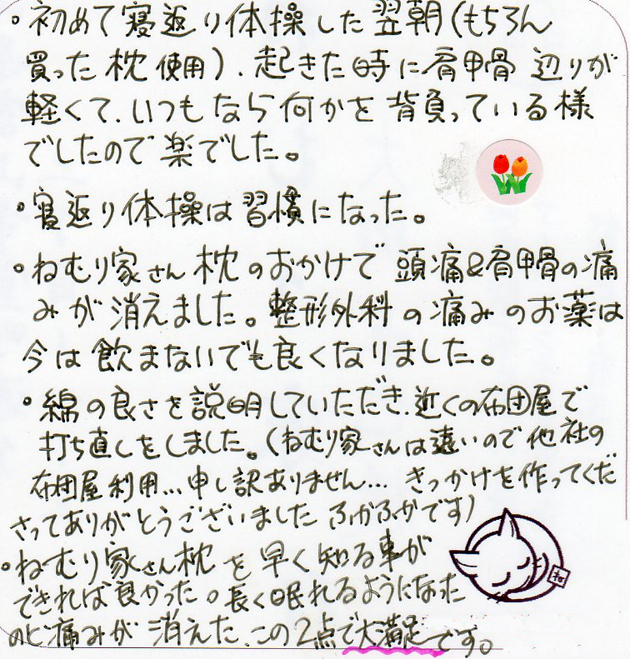 ・初めて寝返り体操した翌朝(もちろん
買った枕使用)、起きた時に肩甲骨辺りが
軽くて、いつもなら何かを背負っている様
でしたので楽でした。
・寝返り体操は習慣になった。
・ねむり家さん枕のおかげで頭痛&肩甲骨の痛
みが消えました。整形外科の痛みのお薬は
今は飲まないでも良くなりました。
・綿の良さを説明していただき、近くの布団屋で
打ち直しをしました。(ねむり家さんは遠いので他社の
布団屋利用...申し訳ありません... きっかけを作ってくだ
さってありがとうございました ふかふかです)
・ねむり家さん枕を早く知る事が
できれば良かった。長く眠れるようになった
のと痛みが消えた、この2点で大満足です。